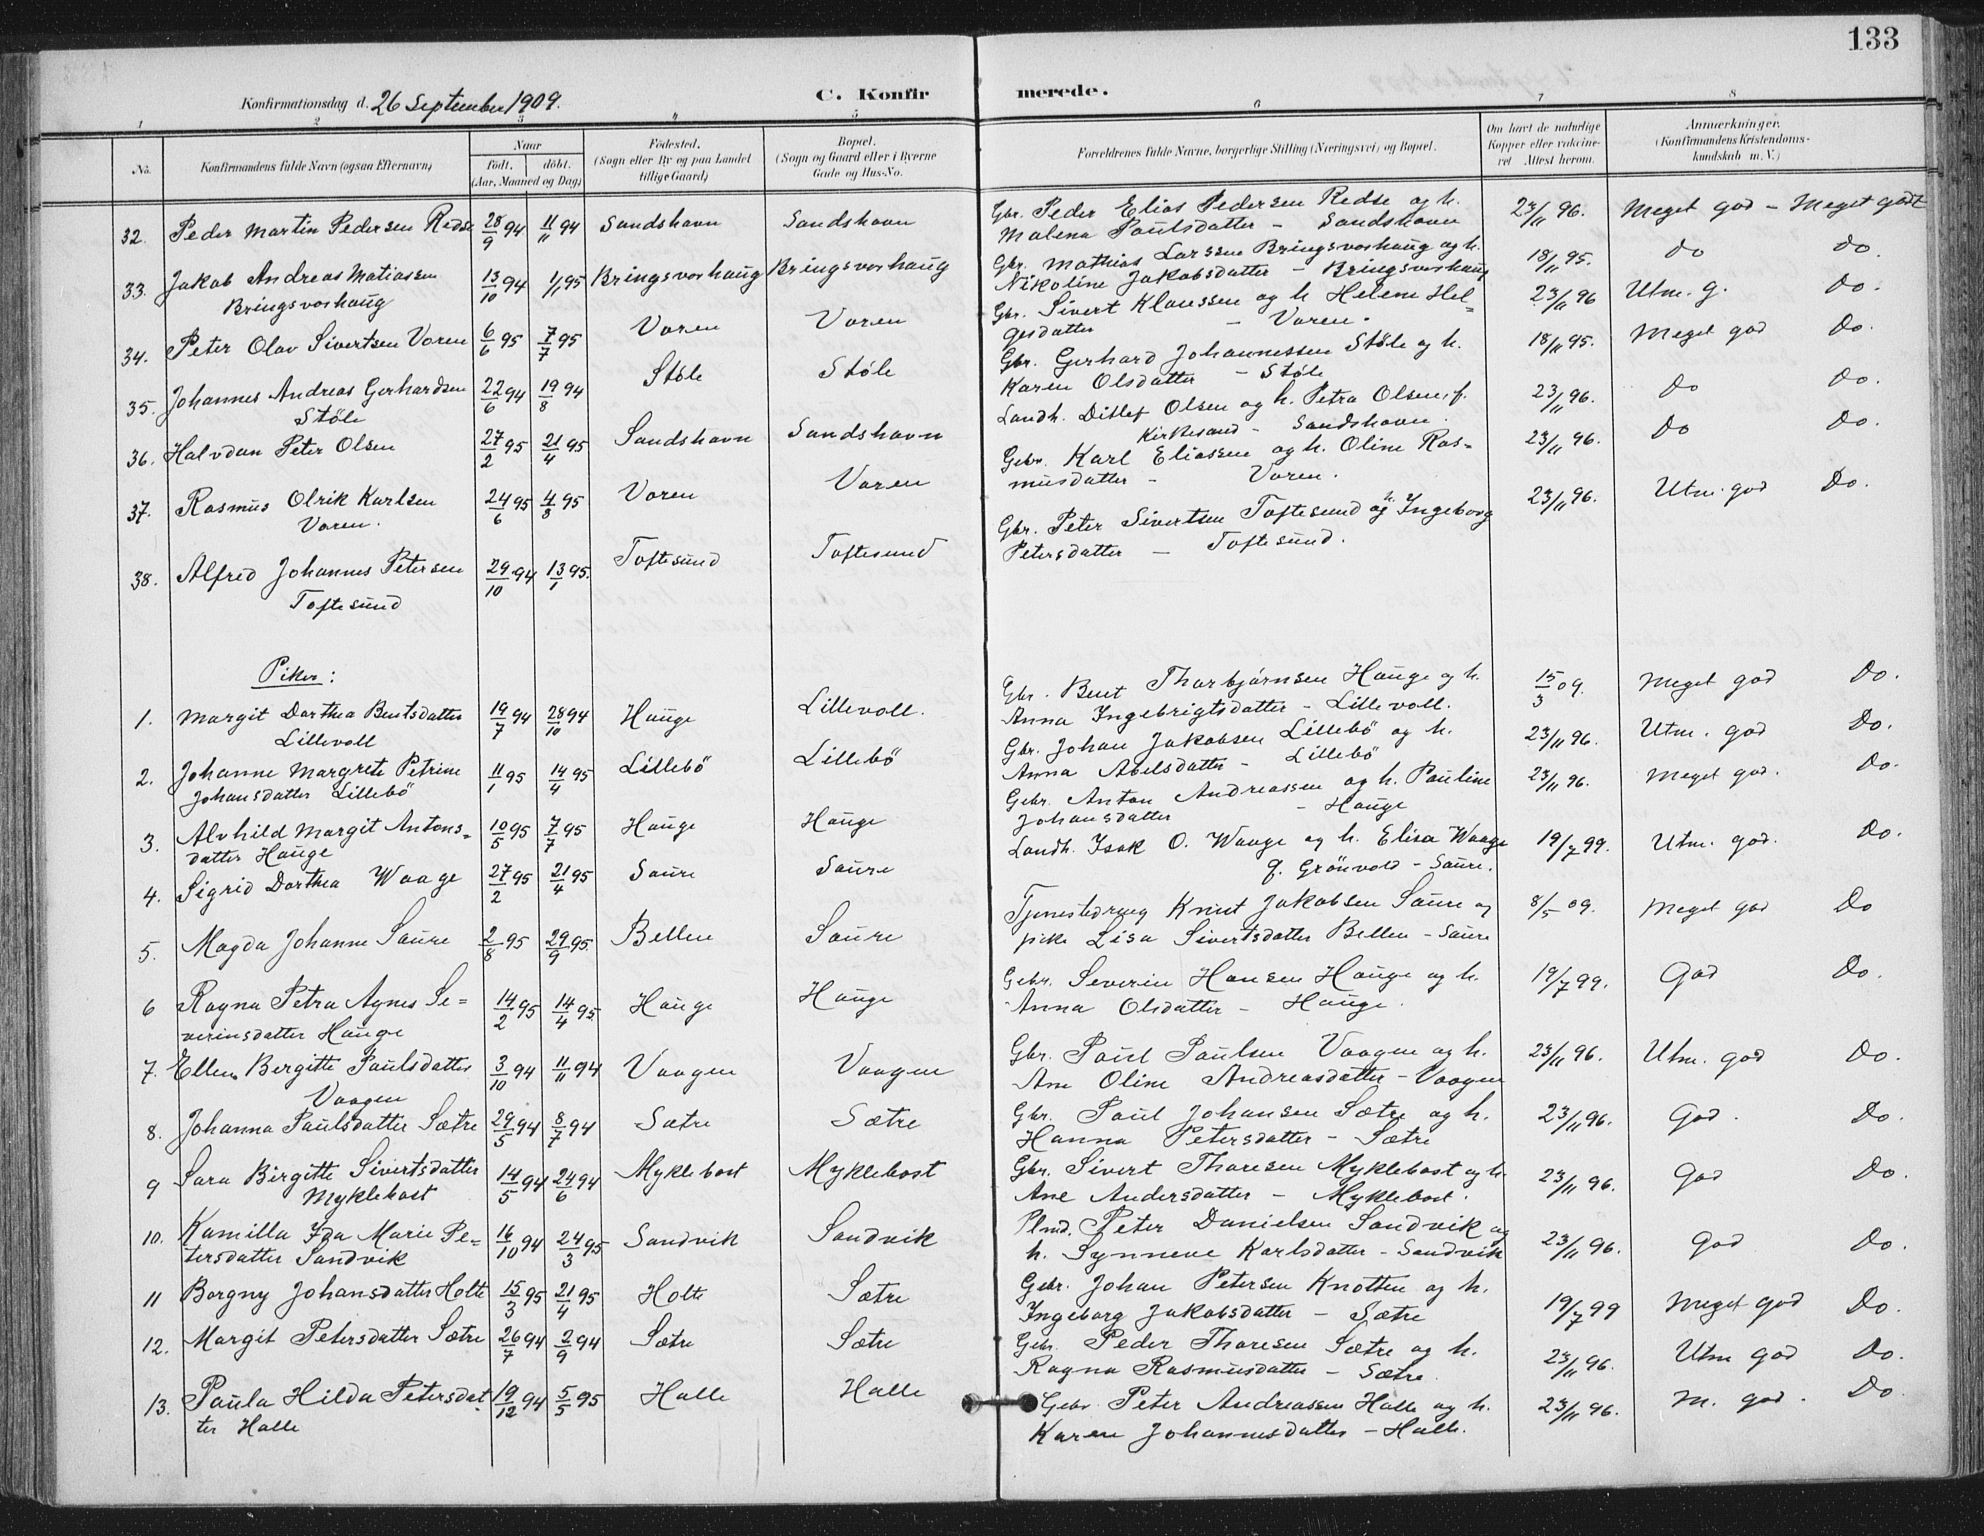 133
Konfirmationsdag d. 26 September 1909.
C. Konfir
merede.
1 2 3 4 5 6 7 8
No.
Konfirmandens fulde Navn (ogsaa Efternavn)
Naar
født. døbt.
(Aar, Maaned og Dag)
Fødested.
(Sogn eller By og paa Landet
tillige Gaard)
Bopæl.
(Sogn og Gaard eller i Byerne
Gade og Hus-No.
Forældrenes fulde Navne, borgerlige Stilling (Næringsvei) og Bopæl.
Om havt de naturlige
Kopper eller vakcine-
ret Attest herom.
Anmærkninger.
(Konfirmandens Kristendoms-
kundskab m. V.)
32. Peder Martin Pedersen Redse 28/9 94 11/11 94 Sandshavn Sandshavn Gbr. Peder Elias Pedersen Redse og h. 23/11 96. Meget god – Meget godt
Malena Paulsdatter – Sandshavn
33. Jakob Andreas Matiassen 13/10 94 1/1 95 Bringsvorhaug Bringsvorhaug Gbr. Mathias Larssen Bringsvorhaug og h. 18/11 95. Do Do.
Bringsvorhaug Nikoline Jakobsdatter – Bringsvorhaug
34. Peter Olav Sivertsen Voren 6/6 95 7/7 95 Voren Voren Gbr. Sivert Klaussen og h. Helene Hel= 23/11 96 Utm. g. Do.
gesdatter – Voren.
35. Johannes Andreas Gerhardsen 22/6 94 19/8 94 Støle Støle Gbr. Gerhard Johannessen Støle og h. 18/11 95. Meget god Do.
Støle Karen Olsdatter – Støle
36. Halvdan Peter Olsen 27/2 95 21/4 95 Sandshavn Sandshavn Landh. Ditlef Olsen og h. Petra Olsen, f. 23/11 96. Do Do.
Kirkesund – Sandshavn
37. Rasmus Olrik Karlsen 24/6 95 4/8 95 Voren Voren Gebr. Karl Eliassen og h. Oline Ras= 23/11 96. Do Do.
Voren. musdatter – Voren.
38. Alfred Johannes Petersen 29/10 94 13/1 95. Toftesund Toftesund Gbr. Peter Sivertsen Toftesund og h. Ingeborg 23/11 96. Utm. god Do.
Toftesund Petersdatter – Toftesund.
Piker:
1. Margit Dorthea Bentsdatter 19/7 94 28/10 94 Hauge Lillevoll. Gbr. Bent Thorbjørnsen Hauge og h. 15/3 09. Meget god Do.
Lillevoll Anna Ingebrigtsdatter – Lillevoll.
2. Johanne Margrete Petrine 11/1 95 14/4 95 Lillebö Lillebö Gbr. Johan Jakobsen Lillebö og h. 23/11 96. Utm. god Do.
Johansdatter Lillebö Anna Abelsdatter – Lillebö
3. Alvhild Margit Antons= 10/5 95 7/7 95 Hauge Hauge Gebr. Anton Andreassen og h. Pauline 23/11 96. Meget god. Do.
datter Hauge Johansdatter – Hauge
4. Sigrid Dorthea Waage 27/2 95 21/4 95 Saure Saure Landh. Isak O. Waage og h. Elisa Waage 19/7 99. Utm. god. Do.
f. Grönvold – Saure.
5. Magda Johanne Saure 2/8 95 29/9 95. Bellen Saure Tjenestedreng Knut Jakobsen Saure og 8/5 09. Meget god Do
pike Lisa Sivertsdatter Bellen – Saure
6 Ragna Petra Agnes Se= 14/2 95 14/4 95 Hauge Hauge Gebr. Severin Hansen Hauge og h. 19/7 99. God Do.
verinsdatter Hauge Anna Olsdatter – Hauge.
7. Ellen Bergitte Paulsdatter 3/10 94 11/11 94 Vaagen Vaagen Gbr. Paul Paulsen Vaagen og h. 23/11 96. Utm. god Do.
Vaagen Ane Oline Andreasdatter – Vaagen
8. Johanna Paulsdatter Sætre 29/5 94 8/7 94 Sætre Sætre Gbr. Paul Johansen Sætre og h. 23/11 96. God. Do.
Hanna Petersdatter – Sætre
9 Sara Birgitte Sivertsdatter 14/5 94 24/6 94 Myklebost Myklebost Gbr. Sivert Thoresen Myklebost og h. 23/11 96. God Do.
Myklebost Ane Andersdatter – Myklebost.
10. Kamilla Ida Marie Pe= 16/10 94 24/3 95 Sandvik Sandvik Plmd. Peter Danielsen Sandvik og 23/11 96. God Do.
tersdatter Sandvik h. Synneve Karlsdatter – Sandvik
11 Borgny Johansdatter Holte 15/3 95 21/4 95 Holte Sætre Gebr. Johan Petersen Knotten og h. 19/7 99 Meget god Do.
Ingeborg Jakobsdatter – Sætre
12. Margit Petersdatter Sætre 26/7 94 2/9 94 Sætre Sætre Gebr. Peder Thoresen Sætre og h. 23/11 96. Utm god Do.
Ragna Rasmusdatter – Sætre.
13. Paula Hilda Petersdat 19/12 94 5/5 95 Halle Halle Gebr. Peter Andreassen Halle og h. 23/11 96. M. god. Do.
ter Halle Karen Johannesdatter – Halle.